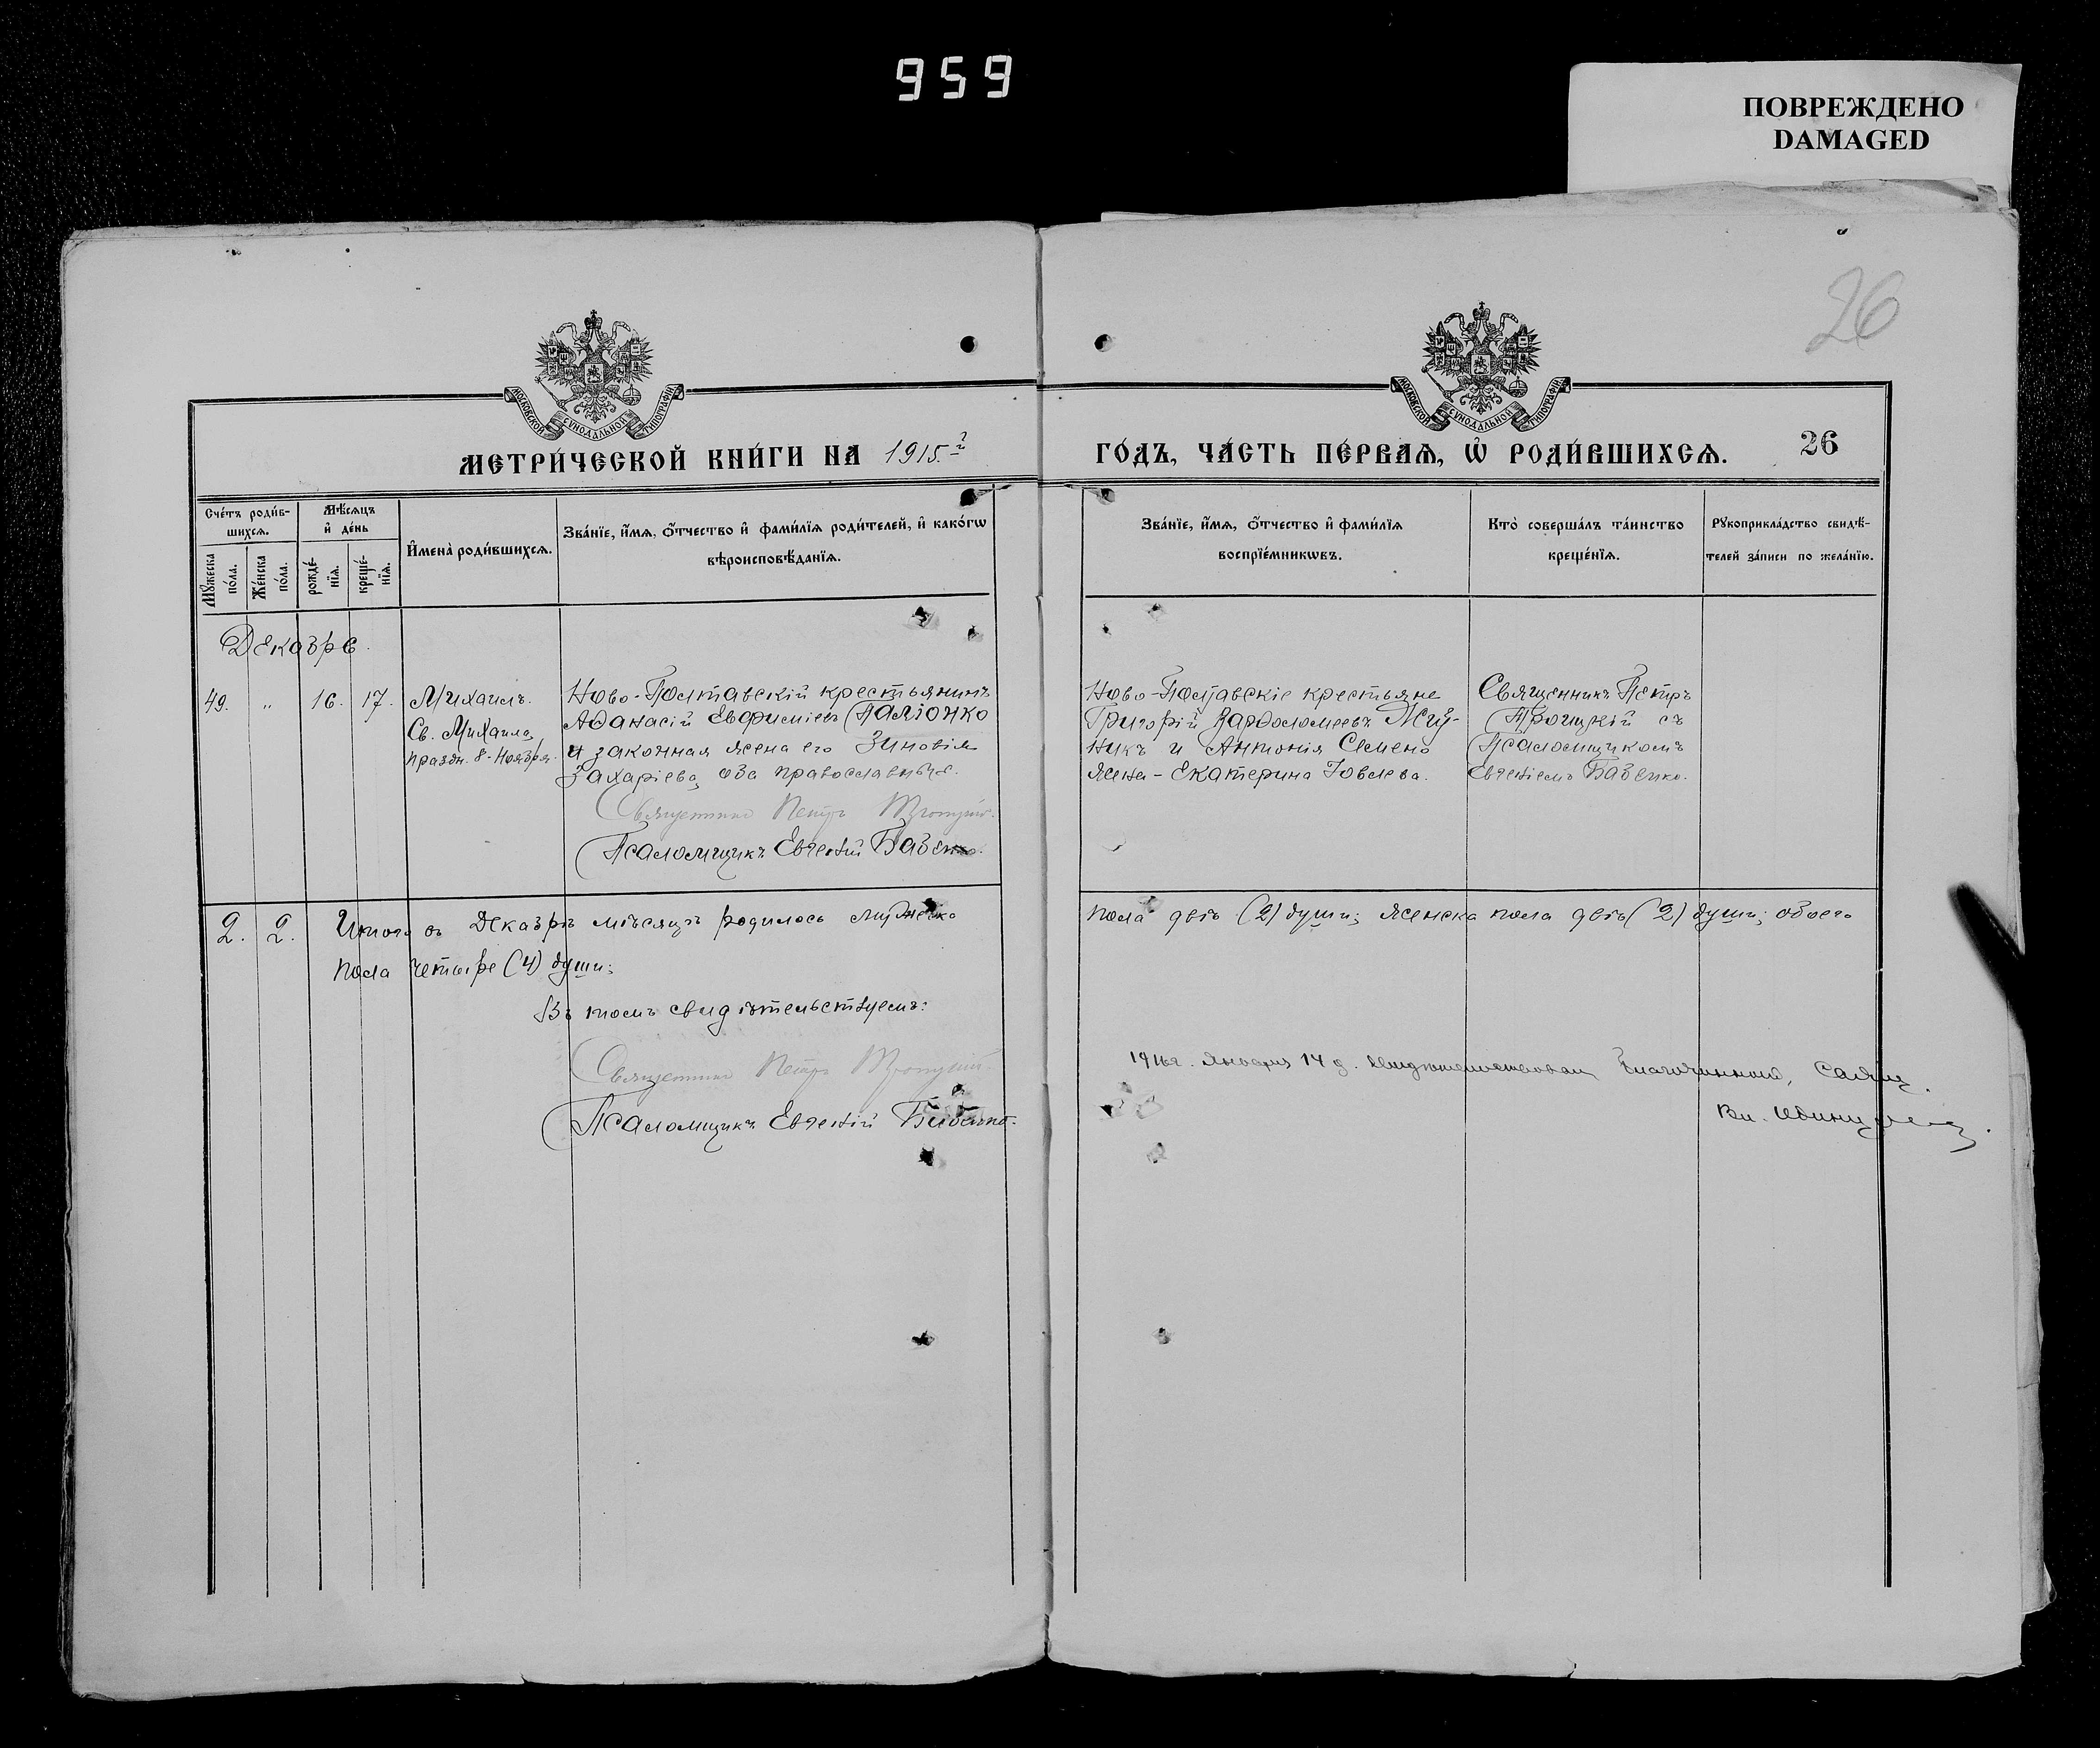 959
ПОВРЕЖДЕНО
DAMAGED
26
МОСКОВСКОЙ СУНОДАЛЬНОЙ ТИПОГРАФІИ
МОСКОВСКОЙ СУНОДАЛЬНОЙ ТИПОГРАФІИ
МЕТРИ́ЧЕСКОЙ КНИ́ГИ НА 1915 г. ГО́ДЪ, ЧА́СТЬ ПЕ́РВАѦ, Ѡ҆ РОДИ́ВШИХСѦ. 26
Сче́тъ роди́в-
шихсѧ.
Мꙋ́жеска по́ла.
Же́нска по́ла.
Мѣ́сѧцъ
и҆ де́нь
рожде́-
нїѧ.
креще́-
нїѧ.
И҆мена̀ роди́вшихсѧ.
Зва́нїе, и҆́мѧ, ѻ҆́тчество и҆ фами́лїѧ роди́телей, и҆ како́гѡ
вѣроисповѣ́данїѧ.
Зва́нїе, и҆́мѧ, ѻ҆́тчество и҆ фами́лїѧ
воспрїе́мникѡвъ.
Кто̀ соверша́лъ та́инство
креще́нїѧ.
Рꙋкоприкла́дство свидѣ́-
телей за́писи по жела́нїю.
Декабрь.
49. „ 16. 17.
Михаилъ.
Св. Михаила,
праздн. 8-Ноября.
Ново-Полтавскій крестьянинъ
Аѳанасій Евфиміевъ Паліонко
и законная жена его Зиновія
Захаріева, оба православные.
Священникъ Петръ Троицкій.
Псаломщикъ Евгеній Бабенко.
Ново-Полтавскіе крестьяне
Григорій Варѳоломеевъ
и Антонія Семена
жена - Екатерина Іовлева.
Священникъ Петръ
Троицкій съ
Псаломщикомъ
Евгеніемъ Бабенко.
2. 2. Итого въ Декабрѣ мѣсяцѣ родилось мужеска
пола двѣ (2) души; женска пола двѣ (2) души; обоего
пола четыре (4) души;
Въ томъ свидѣтельствуемъ:
Священникъ Петръ Троицкій.
Псаломщикъ Евгеній Бабенко.
1916 г. Января 14 д. Благочинный,